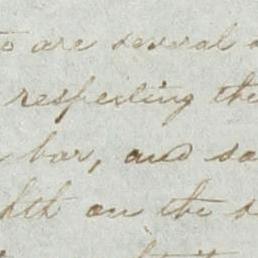 to are several
respecting the
bar, and
on the